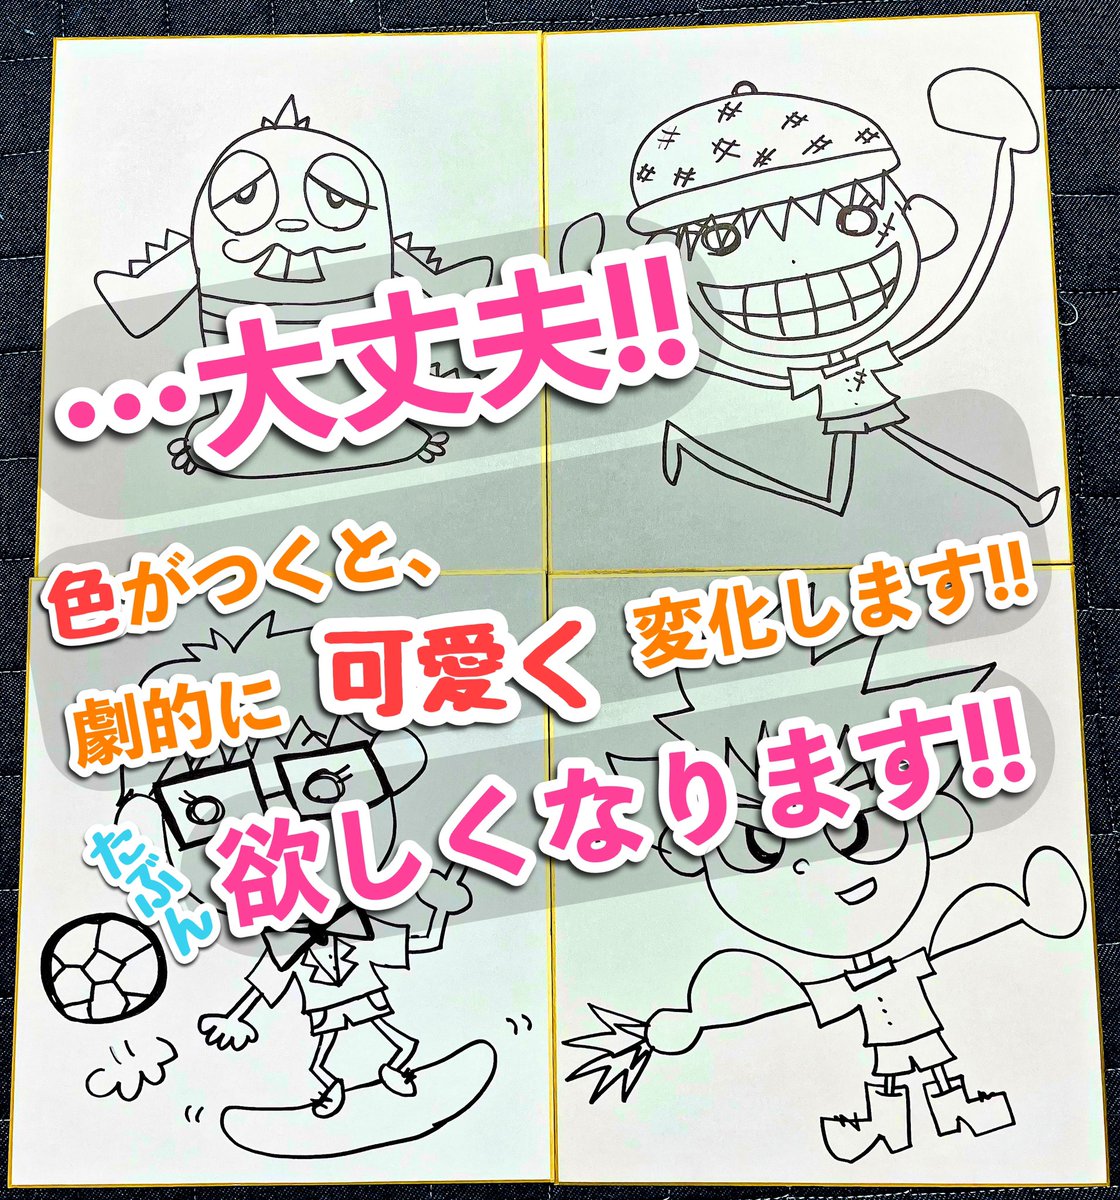 …大丈夫!!
色がつくと、
劇的に 可愛く 変化します!!
たぶん 欲しくなります!!